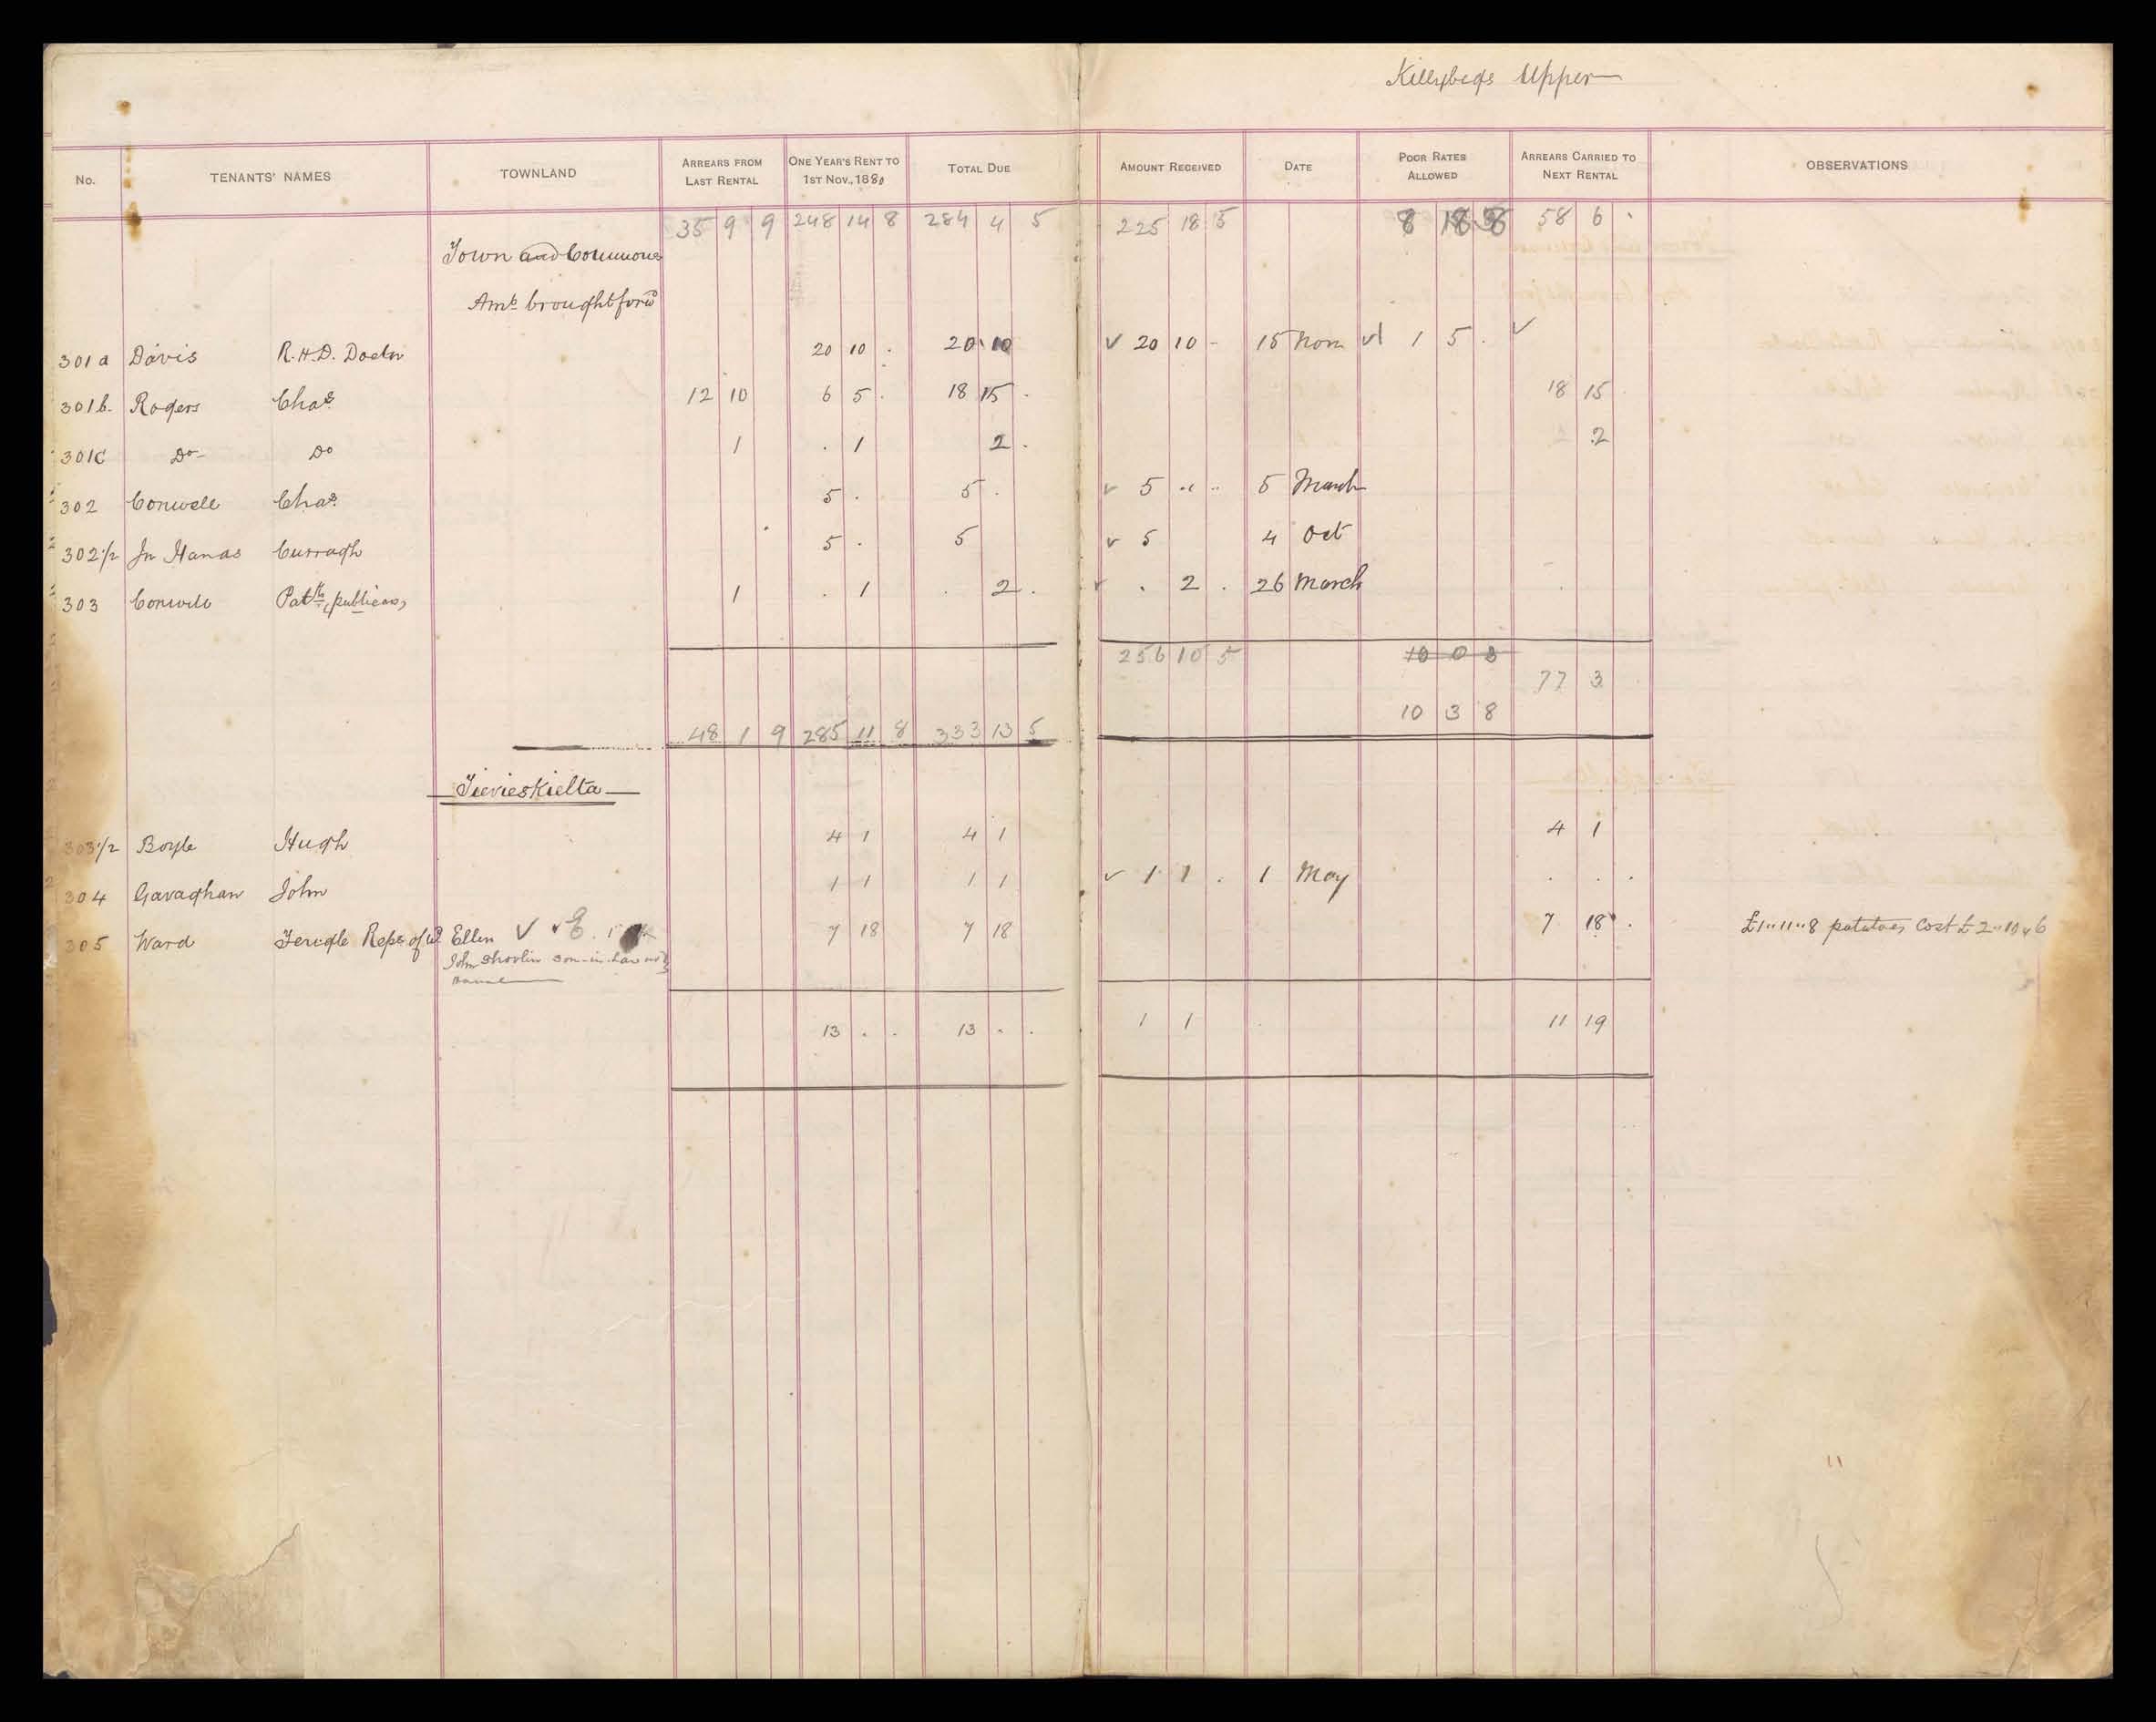 Killybegs Upper
No. TENANTS' NAMES TOWNLAND ARREARS FROM LAST RENTAL ONE YEAR'S RENT TO 1ST NOV., 1880 TOTAL DUE AMOUNT RECEIVED DATE POOR RATES ALLOWED ARREARS CARRIED TO NEXT RENTAL OBSERVATIONS
35 9 9 248 14 8 284 4 5 225 18 5 8 18 8 58 6 .
Town and Commons
Amt. brought forwd
301a Davis R.H.D. Doctor 20 10 . 20 10 ✓ 20 10 - 15 Nov ✓ 1 5 . ✓
301b. Rogers Chas. 12 10 6 5 . 18 15 . 18 15 .
301c Do- Do 1 . 1 2 . 2
302 Conwell Chas. 5 . 5 . ✓ 5 .. .. 5 March
302 1/2 Jn Hanas Curragh 5 . 5 ✓ 5 4 Oct
303 Conwell Patk. publican, 1 . 1 . 2 . ✓ . 2 . 26 March
256 10 5 10 0 8
77 3
10 3 8
48 1 9 285 11 8 333 13 5
Tievieskielta
303 1/2 Boyle Hugh 4 1 4 1 4 1
304 Gavaghan John 1 1 1 1 ✓ 1 1 . 1 May . . .
305 Ward Feragle Reps of wd Ellen ✓ 7 18 7 18 7 18 . £1"11"8 potatoes cost £2"10"6
John Shovlin son-in-law
13 . . 13 . . 1 1 11 19